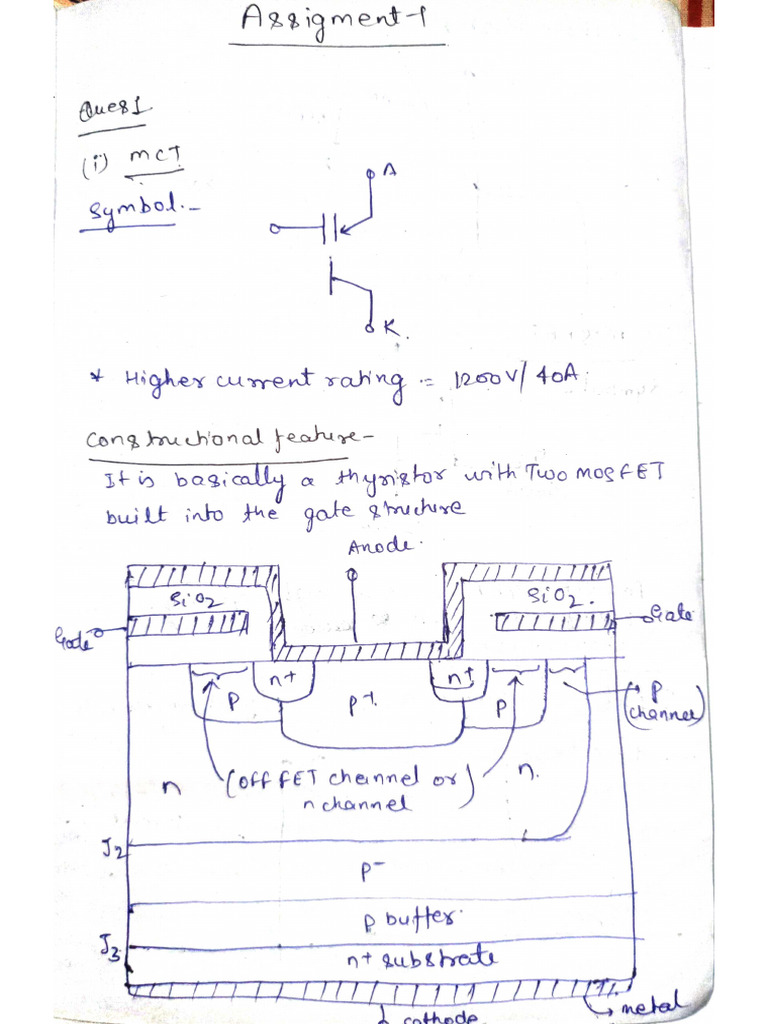 Assigment-1
Ques1
(i) MCT
Symbol:-
A
K.
* Higher current rating := 1200V/40A.
Constructional feature-
It is basically a thyristor with Two MOSFET
built into the gate structure
Anode.
SiO2
SiO2.
Gate
Gate
n+
n+
P
P+.
P
P
(channel)
n
(OFF FET channel or)
n channel
n.
J2
P-
P buffer.
J3
n+ substrate
metal
cathode.